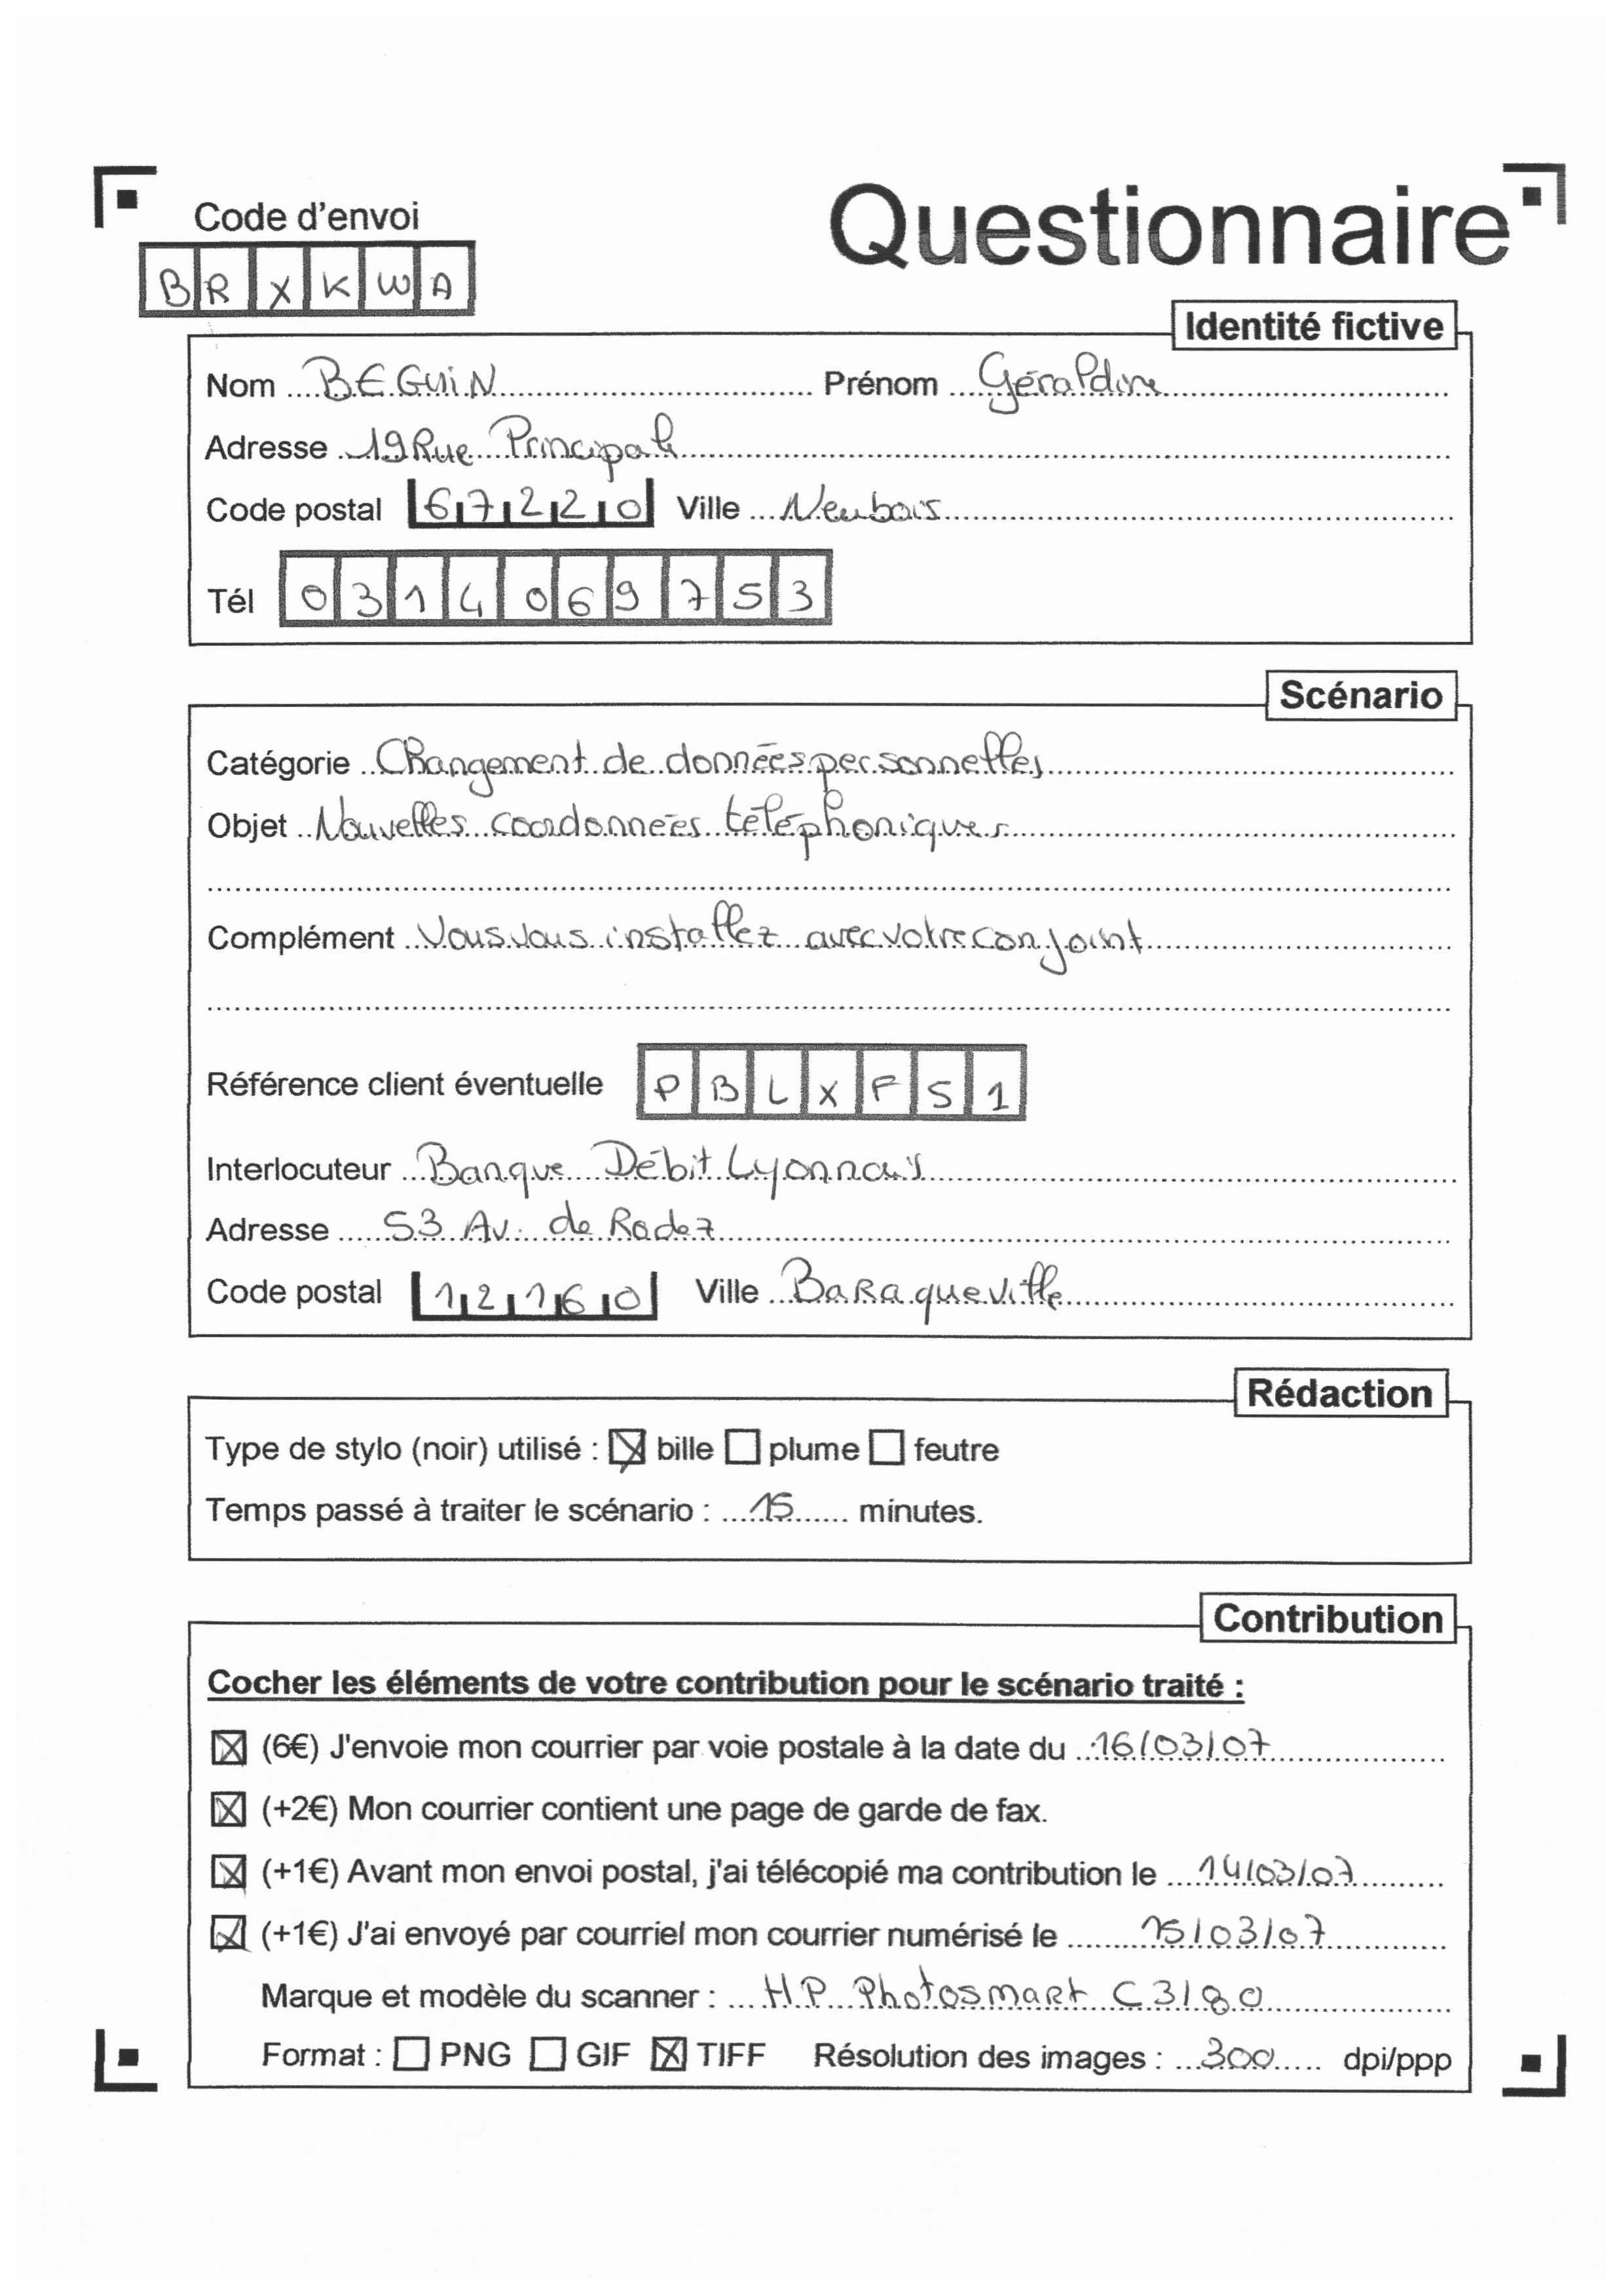 Code d'envoi
Questionnaire
BRXKWA
Identité fictive
Nom BEGUIN Prénom Géraldine
Adresse 19 Rue Principale
Code postal 67220 Ville Neubois
Tél 0314069753
Scénario
Catégorie Changement de données personnelles
Objet Nouvelles coordonnées téléphoniques
Complément Vous vous installez avec votre conjoint
Référence client éventuelle PBLXFS1
Interlocuteur Banque Débit Lyonnais
Adresse 53 Av. de Rodez
Code postal 12160 Ville Baraqueville
Rédaction
Type de stylo (noir) utilisé : ☒ bille ☐ plume ☐ feutre
Temps passé à traiter le scénario : 15 minutes.
Contribution
Cocher les éléments de votre contribution pour le scénario traité :
☒ (6€) J'envoie mon courrier par voie postale à la date du 16/03/07
☒ (+2€) Mon courrier contient une page de garde de fax.
☒ (+1€) Avant mon envoi postal, j'ai télécopié ma contribution le 14/03/07
☒ (+1€) J'ai envoyé par courriel mon courrier numérisé le 15/03/07
Marque et modèle du scanner : HP Photosmart C3180
Format : ☐ PNG ☐ GIF ☒ TIFF Résolution des images : 300 dpi/ppp